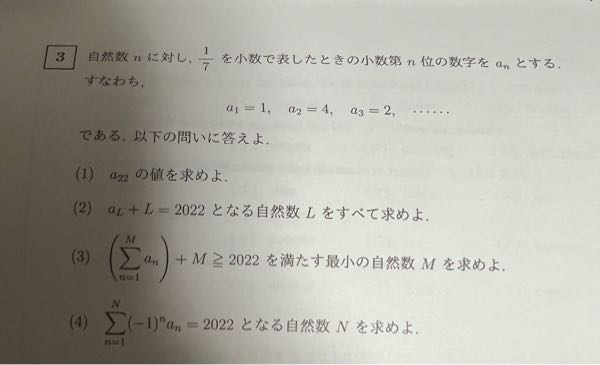 3 自然数 n に対し, 1/7 を小数で表したときの小数第 n 位の数字を aₙ とする.
すなわち,
a₁ = 1, a₂ = 4, a₃ = 2, ······
である. 以下の問いに答えよ.
(1) a₂₂ の値を求めよ.
(2) a_L + L = 2022 となる自然数 L をすべて求めよ.
(3) (∑_{n=1}^{M} aₙ) + M ≧ 2022 を満たす最小の自然数 M を求めよ.
(4) ∑_{n=1}^{N} (−1)ⁿaₙ = 2022 となる自然数 N を求めよ.